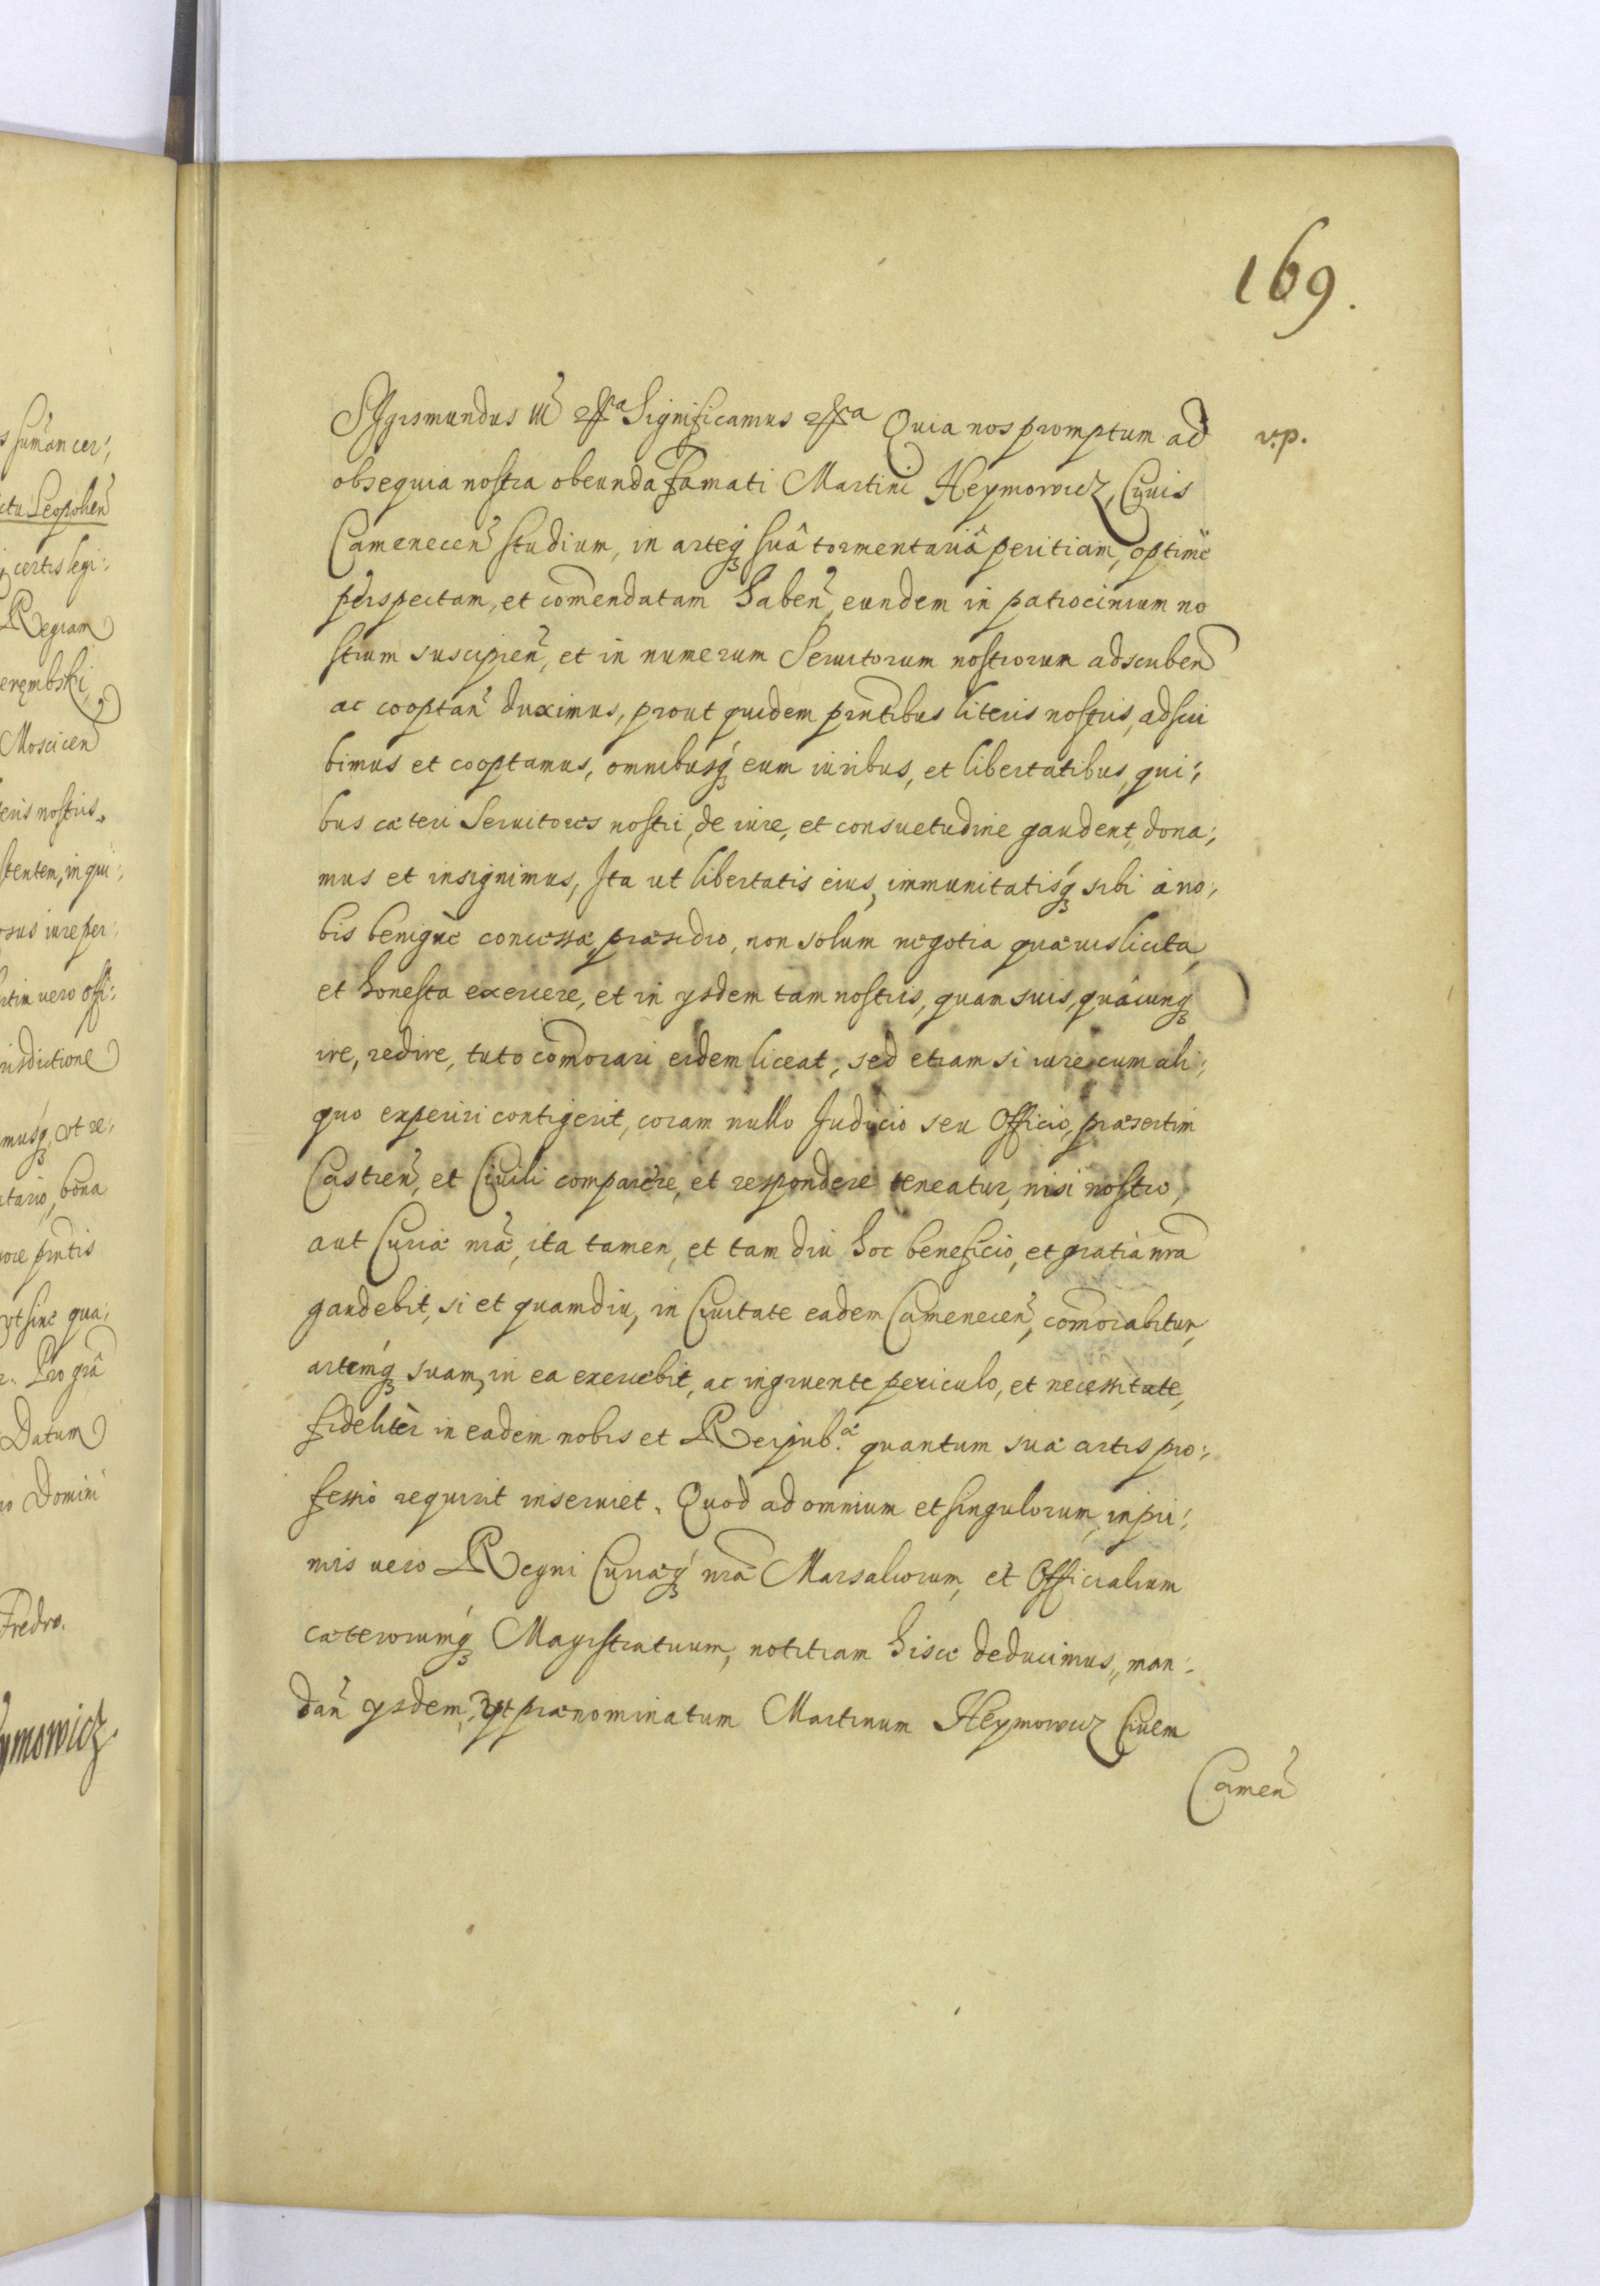 169.
Sigismundus III &ca Significamus &ca Quia nos promptum ad
v.p.
obsequia nostra obeunda Famati Martini Heymowicz, Civis
Camenecen̄ studium, in arteq́ꝫ suâ tormentariâ peritiam, optimè
perspectam, et com̄endatam haben̄, eundem in patrocinium no
strum suscipien̄, et in numerum Seruitorum nostrorum adscriben̄
ac cooptan̄ duximus, prout quidem prn̄tibus literis nostris, adscri
bimus et cooptamus, omnibusq́ꝫ eum iuribus, et libertatibus, qui;
bus cæteri Seruitores nostri, de iure, et consuetudine gaudent, dona;
mus et insignimus, Ita ut libertatis eius, immunitatisq́ꝫ sibi à no;
bis benignè concessæ, præsidio, non solum negotia quævis licita
et honesta exercere, et in ysdem tam nostris, quam suis, quâcunqꝫ
ire, redire, tuto com̄orari eidem liceat; sed etiam si iure cum ali;
quo experiri contigerit, coram nullo Judicio seu Officio, præsertim
Castren̄, et Ciuili comparere, et respondere teneatur, nisi nostro,
aut Curiæ nr̄æ, ita tamen, et tam diu hoc beneficio, et gratiâ nr̄a
gaudebit, si et quamdiu, in Ciuitate eadem Camenecen̄, com̄orabitur,
artemq́ꝫ suam, in ea exercebit, ac ingruente periculo, et necessitate,
fidelitèr in eadem nobis et Reipub.æ quantum suæ artis pro;
fessio requirit inseruiet. Quod ad omnium et singulorum, inpri;
mis vero Regni Curiæq́ꝫ nr̄æ Marsalcorum, et Officialium
cæterorumq́ꝫ Magistratuum, notitiam hisce deducimus, man;
dan̄ ysdem, ut prænominatum Martinum Heymowicz Ciuem
Camen̄